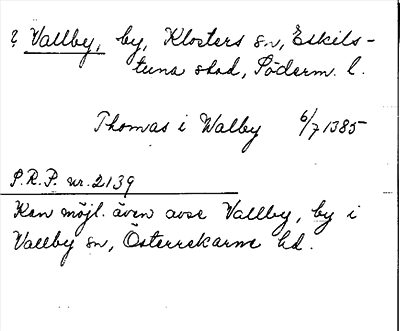 ? Vallby, by, Klosters sn, Eskils-
tuna stad, Söderm. l.
Thomas i Walby 6/7 1385
P.R.P. nr. 2139
Kan möjl. även avse Vallby, by i
Vallby sn, Österrekarne hd.